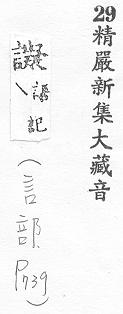 29精嚴新集大藏音
記
(言部P739)